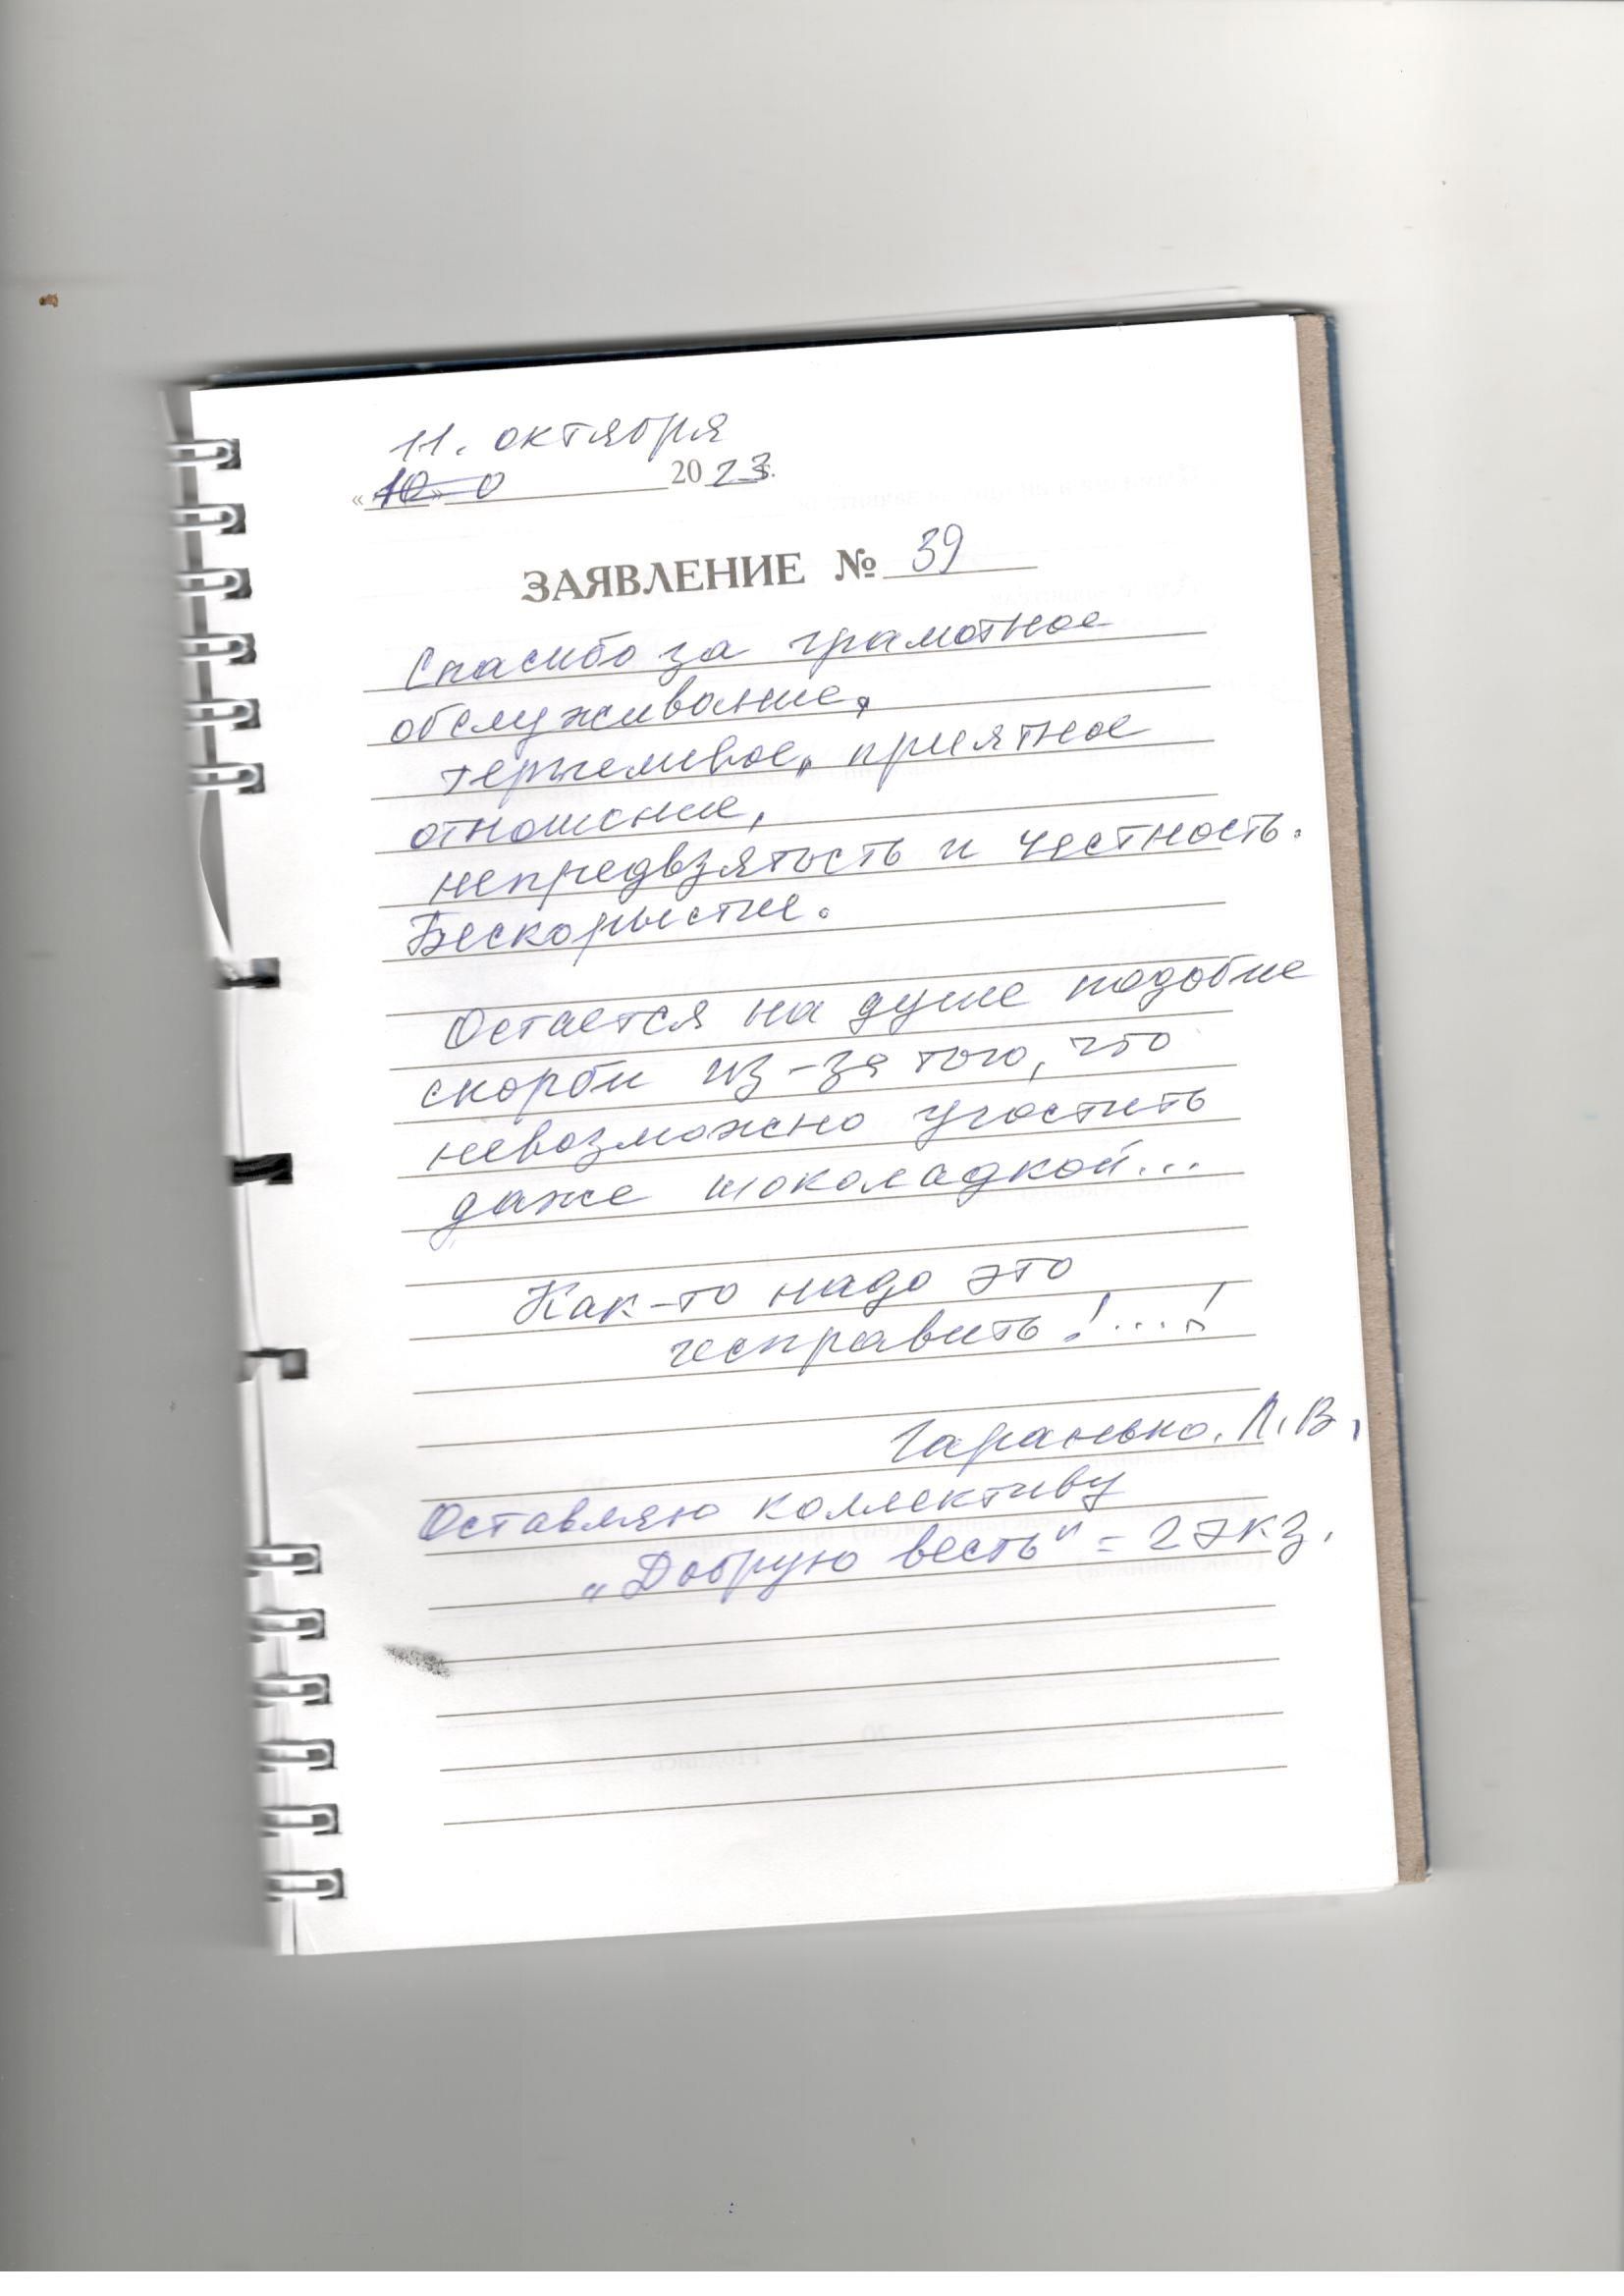 11. октября
« 10 » 0 2023г.
ЗАЯВЛЕНИЕ № 39
Спасибо за грамотное
обслуживание,
терпеливое, приятное
отношение,
непредвзятость и честность.
Бескорыстие.
Остается на душе подобие
скорби из-за того, что
невозможно угостить
даже шоколадкой...
Как-то надо это
исправить!....!
Гаранько. Л.В.
Оставляю коллективу
„Добрую весть" = 2 экз.